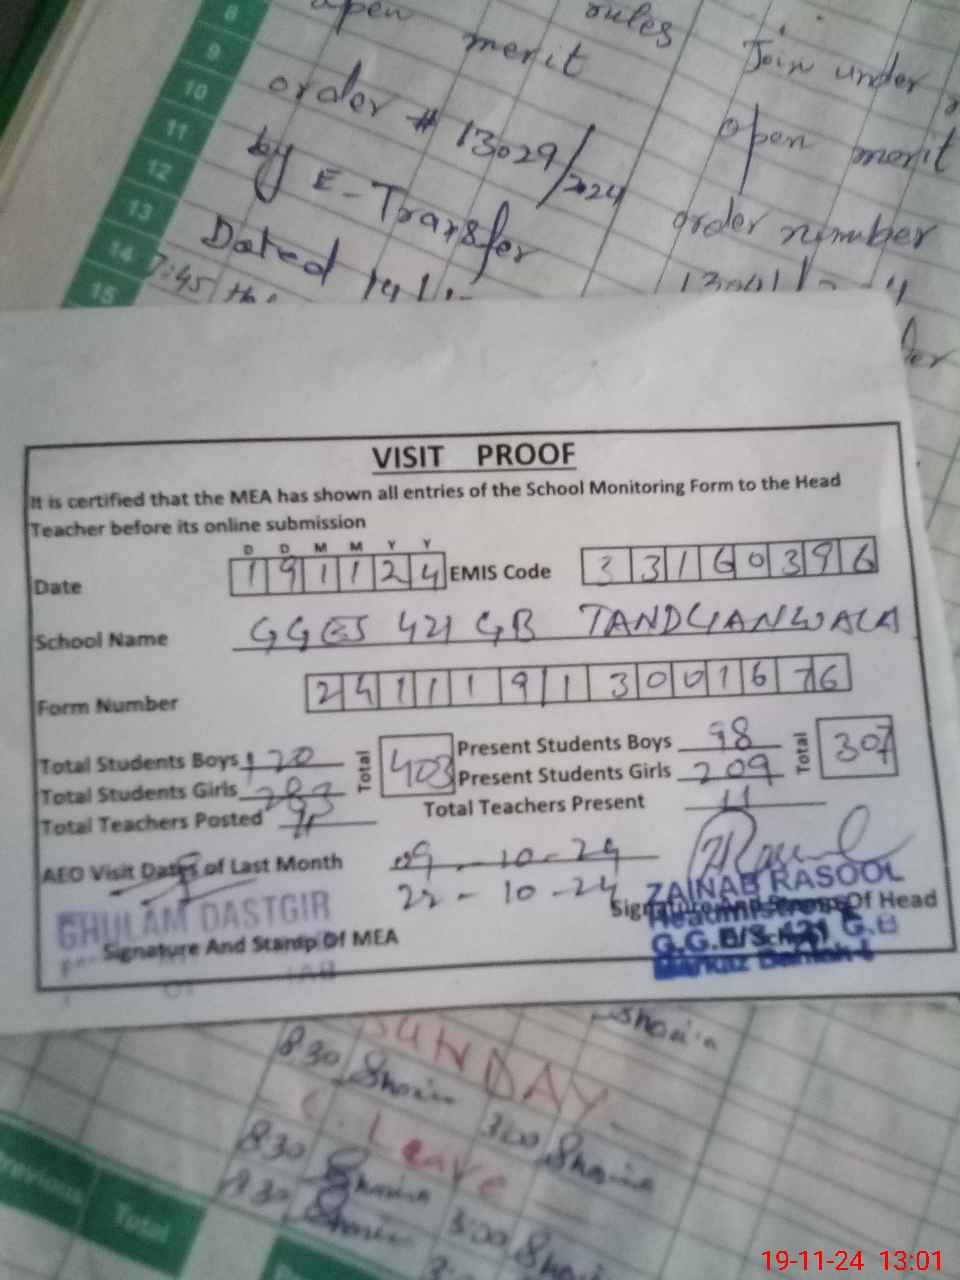 8
9
10
11
12
13
14
15
open
merit
order # 13029/2024
by E-Transfer
Dated
7:45
rules
Join under
open merit
order number
VISIT PROOF
It is certified that the MEA has shown all entries of the School Monitoring Form to the Head
Teacher before its online submission
D D M M Y Y
Date 191124 EMIS Code 33160396
School Name GGES 421 GB TANDLIANWALA
Form Number 24111913001676
Total Students Boys 120 Total 403 Present Students Boys 98 Total 307
Total Students Girls 283 Present Students Girls 209
Total Teachers Posted 11 Total Teachers Present 11
AEO Visit Dates of Last Month 09-10-24
22-10-24
GHULAM DASTGIR
Signature And Stamp Of MEA
ZAINAB RASOOL
Signature And Stamp Of Head
Headmistress
G.G.E/S 421 G.B
Markaz
SUNDAY
830 300
C. Leave
830 3:00
830
Previous Total
19-11-24 13:01